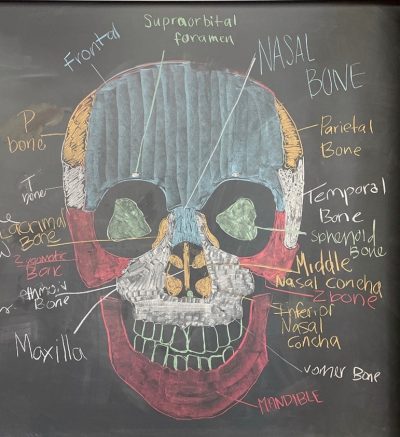 Supraorbital
foramen
Frontal
NASAL
BONE
P
bone
Parietal
Bone
T
bone
Temporal
Bone
Lacrimal
Bone
Sphenoid
Bone
Zygomatic
Bone
Middle
Nasal concha
Z bone
ethmoid
Bone
Inferior
Nasal
Concha
Maxilla
vomer Bone
MANDIBLE